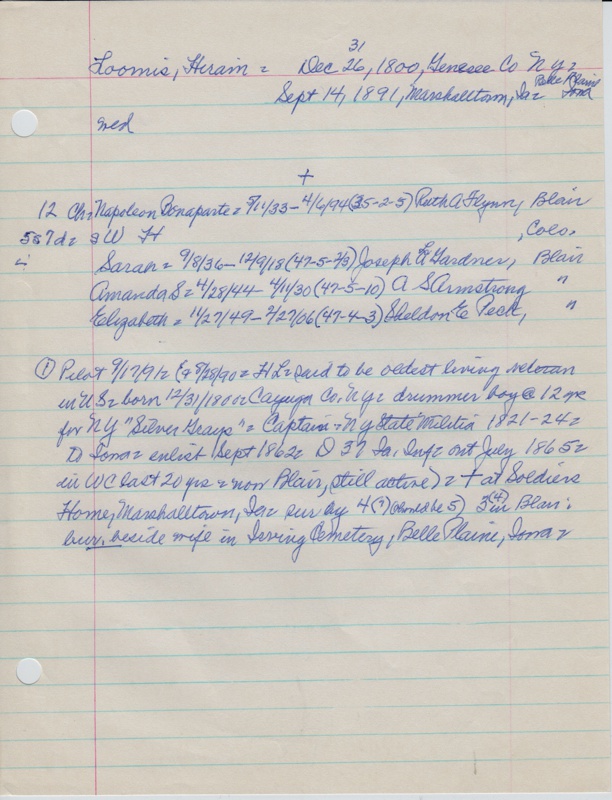 31
Loomis, Hiram = Dec 26, 1800, Genesee Co NY =
Sept 14, 1891, Marshalltown, Ia = Belle Plaine Iowa
wed
+
12 Ch = Napoleon Bonaparte = 5/11/33 - 4/6/94 (35-2-5) Ruth A Flynn, Blair
5s 7d = s W H , Colo.
Sarah = 9/8/36 - 12/9/18 (47-5-2/3) Joseph E Gardner, Blair
Amanda S = 4/28/44 - 4/11/30 (47-5-10) A S Armstrong "
Elizabeth = 11/27/49 - 2/27/06 (47-4-3) Sheldon E Peck, "
① Pilot 9/17/91 = E 5/28/90 = H L = said to be oldest living veteran
in US = born 12/31/1800 = Cayuga Co. NY = drummer boy @ 12 yrs
for NY "Silver Grays" = Captain = NY State Militia 1821-24 =
to Iowa = enlist Sept 1862 = D 37 Ia. Inf = out July 1865 =
in WC last 20 yrs = now Blair, (still active) = + at Soldiers
Home, Marshalltown, Ia = sur by 4 (?) (should be 5) 3 (4) in Blair =
bur. beside wife in Irving Cemetery, Belle Plaine, Iowa =